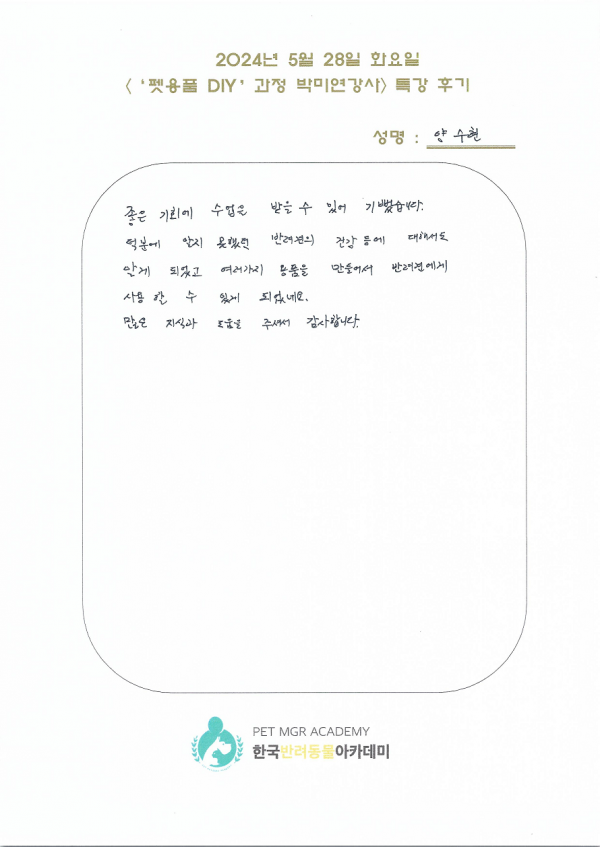 2024년 5월 28일 화요일
< '펫용품 DIY' 과정 박미연강사> 특강 후기
성명 : 양 수현
좋은 기회에 수업을 받을 수 있어 기뻤습니다.
덕분에 알지 못했던 반려견의 건강 등에 대해서도
알게 되었고 여러가지 용품을 만들어서 반려견에게
사용 할 수 있게 되었네요.
많은 지식과 도움을 주셔서 감사합니다.
PET MGR ACADEMY
한국반려동물아카데미